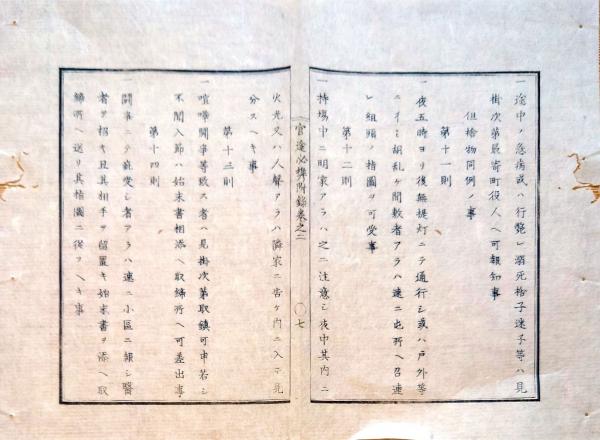 一途中ノ急病或ハ行斃レ溺死捨子迷子等ハ見
掛次第最寄町役人ヘ可報知事
但捨物同例ノ事
第十一則
一夜五時ヨリ後無提灯ニテ通行シ或ハ戸外等
ニイミ胡乱ケ間敷者アラハ速ニ屯所ヘ召連
レ組頭ノ指図ヲ可受事
第十二則
一持場中ニ明家アラハ之ニ注意シ夜中其内ニ
官途必携附録巻之二
〇七
火光又ハ人声アラハ隣家ニ告ケ内ニ入テ見
分スヘキ事
第十三則
一喧嘩闘争等致ス者ハ見掛次第取鎮可申若シ
不聞入節ハ始末書相添ヘ取締所ヘ可差出事
第十四則
一闘争ニテ疵受シ者アラハ速ニ小区ニ報シ医
者ヲ招キ且其相手ヲ留置キ始末書ヲ添ヘ取
締所ヘ送リ其指図ニ従フヘキ事